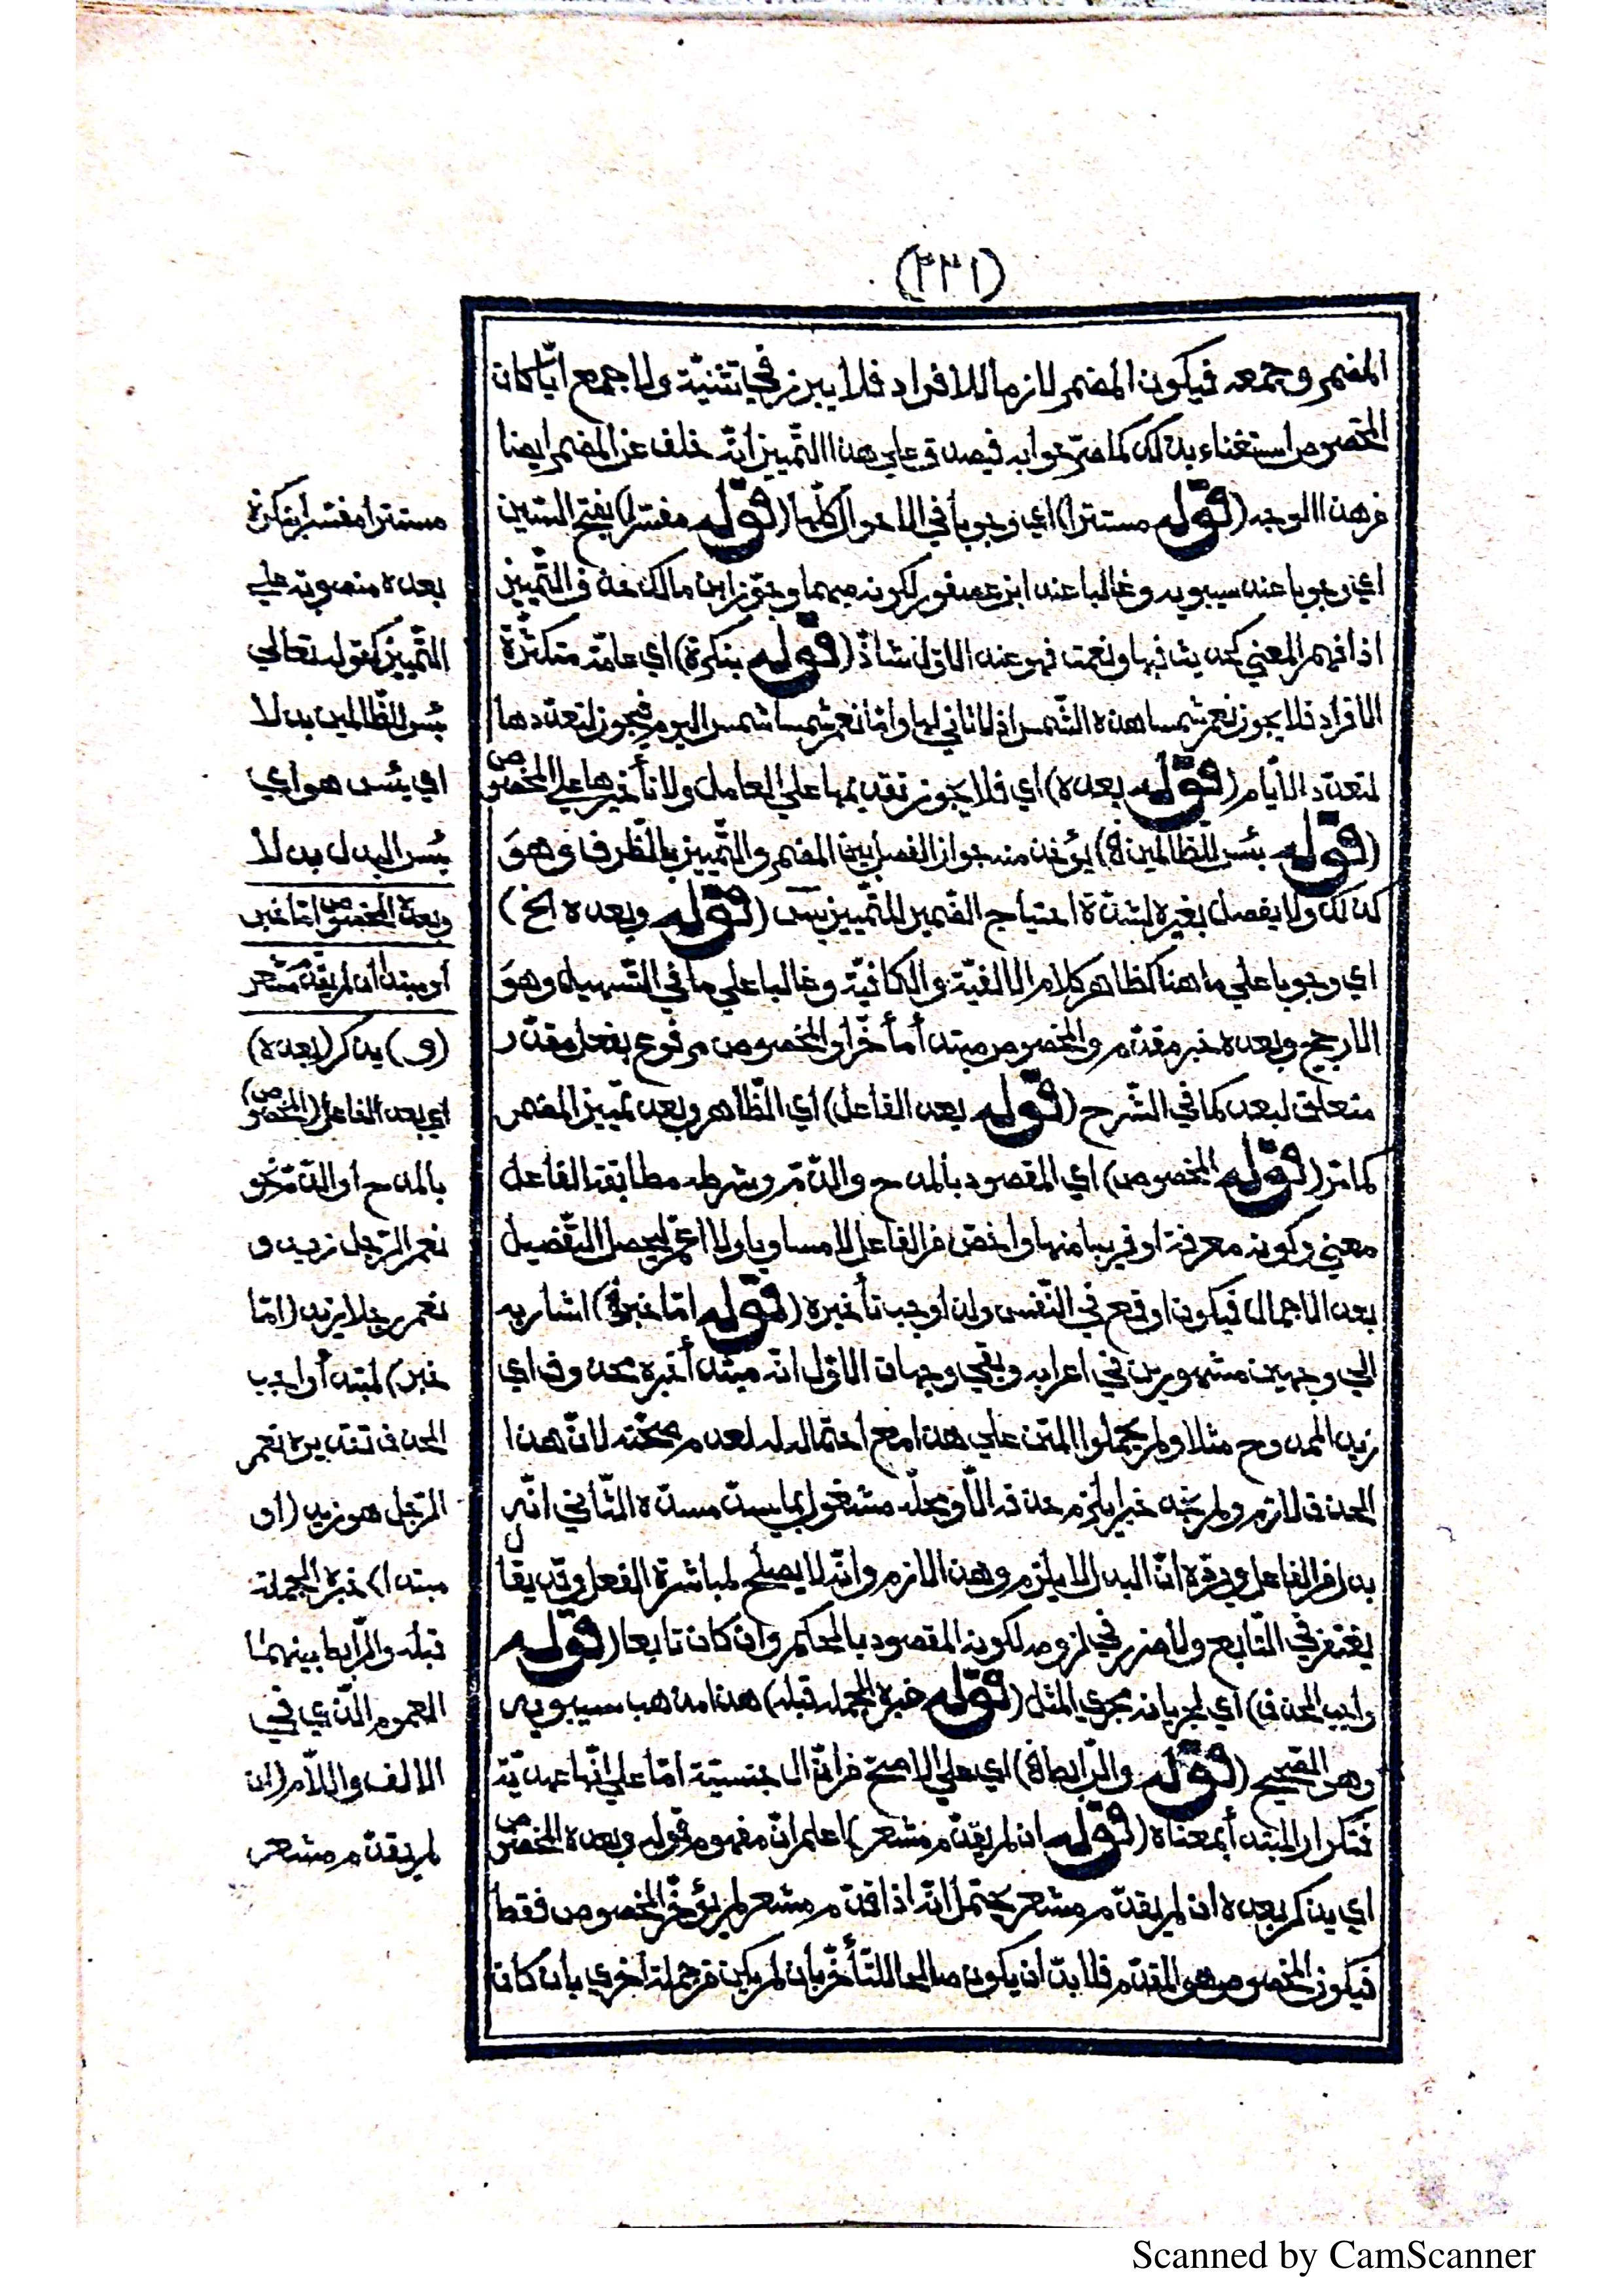 (٢٢١)
المضمر وجمعه فيكون المضمر لازما للافراد فلا يبرز في تثنيّة ولا جمع ايّا كان
المخصوص استغناء بذلك كما صرّحوا به فيصدق علي هذا التّمييز انّه خلف عن المضمر ايضا
فهذا الوجه (قوله مستترا) اي وجوبا في الاحوال كلّها (قوله مفسّرا) بفتح السّين
اي وجوبا عند سيبويه وغالبا عند ابن عصفور لكونه مبهما وجوّز ابن مالك حذف التّمييز
اذا فهم المعني كحديث فبها ونعمت فهو عند الاوّل شاذّ (قوله بنكرة) اي عامّة متكثّرة
الافراد فلا يجوز نعم شمسا هذه الشّمس اذ لا ثاني لها وامّا نعم شمسا شمس اليوم فيجوز لتعدّدها
لتعدّد الايّام (قوله بعده) اي فلا يجوز تقديمها علي العامل ولا تأخيرها علي المخصوص
(قوله بئس للظّالمين) يؤخذ منه جواز الفصل بين المضمر والتّمييز بالظّرف وهو
كذلك ولا يفصل بغيره لشدّة احتياج الضّمير للتّمييز يس (قوله وبعده الخ)
اي وجوبا علي ما هنا كظاهر كلام الالفيّة والكافيّة وغالبا علي ما في التّسهيل وهو
الارجح وبعده خبر مقدّم والمخصوص مبتدأ مأخّر او المخصوص مرفوع بفعل مقدّر
متعلق لبعد كما في الشّرح (قوله بعد الفاعل) اي الظّاهر وبعد تمييز المضمر
كما مرّ (قوله المخصوص) اي المقصود بالمدح والذّمّ وشرطه مطابقة الفاعل
معني وكونه معرفة او قريبا منها واخصّ من الفاعل لا مساويا ولا اعمّ ليحصل التّفصيل
بعد الاجمال فيكون اوقع في النّفس ولذا وجب تأخيره (قوله امّا خبر) اشار به
الي وجهين مشهورين في اعرابه وبقي وجهان الاوّل انّه مبتدأ خبره محذوف اي
زيد الممدوح مثلا ولم يحملوا المتن علي هذا مع احتماله له لعدم صحّته لانّ هذا
الحذف لازم ولم نجد خبرا يلزم حذفه الاّ ومحلّه مشغول بما يسدّ مسدّه الثّاني انّه
بدل من الفاعل وردّه انّ البدل لا يلزم وهذا لازم وانّه لا يصلح لمباشرة الفعل وقد يقال
يغتفر في التّابع ولا ضرر في لزومه لكونه المقصود بالحكم وان كان تابعا (قوله
واجب الحذف) اي لجريانه مجري المثل (قوله خبره الجملة قبله) هذا مذهب سيبويه
وهو الصّحيح (قوله والرّابط) اي علي الاصحّ من انّ ال جنسيّة امّا علي انّها عهديّة
فتكرار المبتدأ بمعناه (قوله ان لم يقدّم مشعر) اعلم انّ مفهوم قوله وبعده المخصوص
اي يذكر بعده ان لم يقدّم مشعر يحتمل انّه اذا قدّم مشعر لم يؤخّر المخصوص فقط
فيكون المخصوص هو المقدّم فلا بدّ ان يكون صالحا للتأخّر بان لم يكن من جملة اخري بان كان
مستترا مفسّرا بنكرة
بعده منصوبة علي
التّمييز كقوله تعالي
بئس للظّالمين بدلا
اي بئس هو اي
بئس البدل بدلا
وبعده المخصوص امّا خبر
أو مبتدأ ان لم يقدّم مشعر
(و) يذكر (بعده)
اي بعد الفاعل (المخصوص)
بالمدح او الذّمّ نحو
نعم الرّجل زيد و
نعم رجلا زيد (امّا
خبر) لمبتدأ واجب
الحذف تقديره نعم
الرّجل هو زيد (او
مبتدا) خبره الجملة
قبله والرّابط بينهما
العموم الّذي في
الالف واللاّم (ان
لم يقدّم مشعر
Scanned by CamScanner